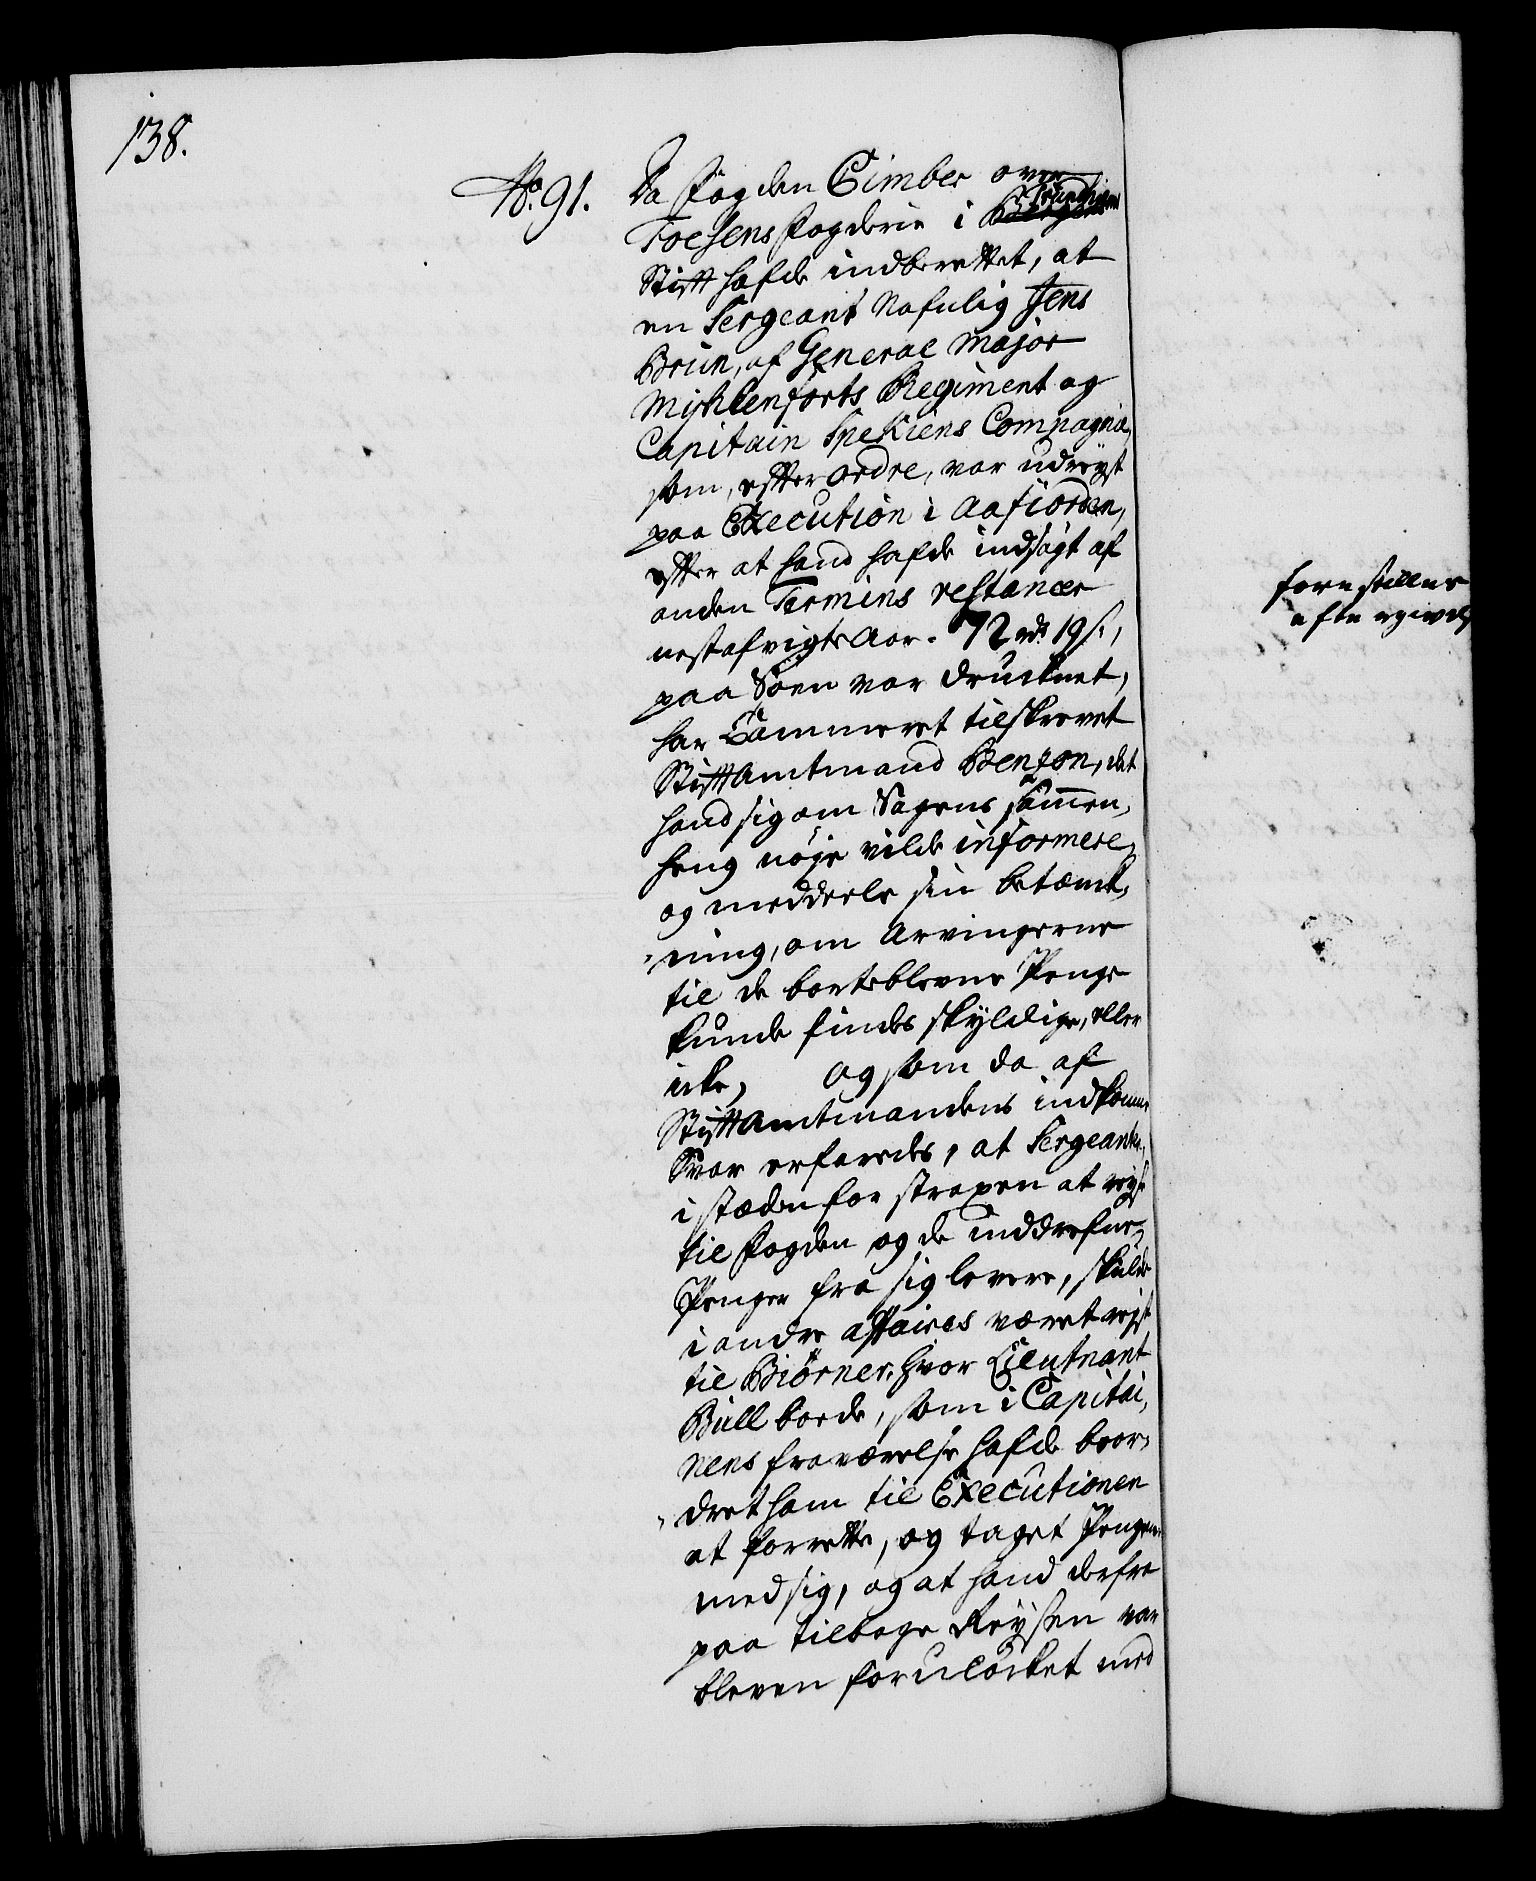 138.
No. 91.
Da Fogden Cimber over
Fosens Fogderie i Bergens Trundhiems
Stift hafde indberettet, at
en Sergeant Nafnlig Jens
Brun, af General Major
Myhlenforts Regiment og
Capitain Spekiens Compagnie,
som, efter ordre, var udreyst
paa Execution i Aafiorden,
efter at hand hafde indsøgt af
anden Termins restancer
nestafvigte Aar. 72 rdr 19 s.,
paa Søen var druknet,
har Cammeret tilskrevet
Stiftamtmand Benzon, det
hand sig om Sagens sammen-
heng nøje vilde informere,
og meddeele sin betænk-
ning, om Arvingerne
til de bortblevne Penge
kunde findes skyldige, eller
icke, og som da af
Stiftamtmandens indkomne
Svar erfaredes, at Sergeanten,
i stæden for strapen at reyse
til Fogden og de inddrefne
Penger fra sig levere, skulde
i andre affaires været reyst
til Biørner, hvor Lieutnant
Bull boede, som i Capitai-
nens fraværelse hafde beor-
dret ham til Executionen
at forrette, og taget Pengene
med sig, og at hand derfra
paa tilbage Reysen var
bleven forulocket med
forestilles
eftergivels